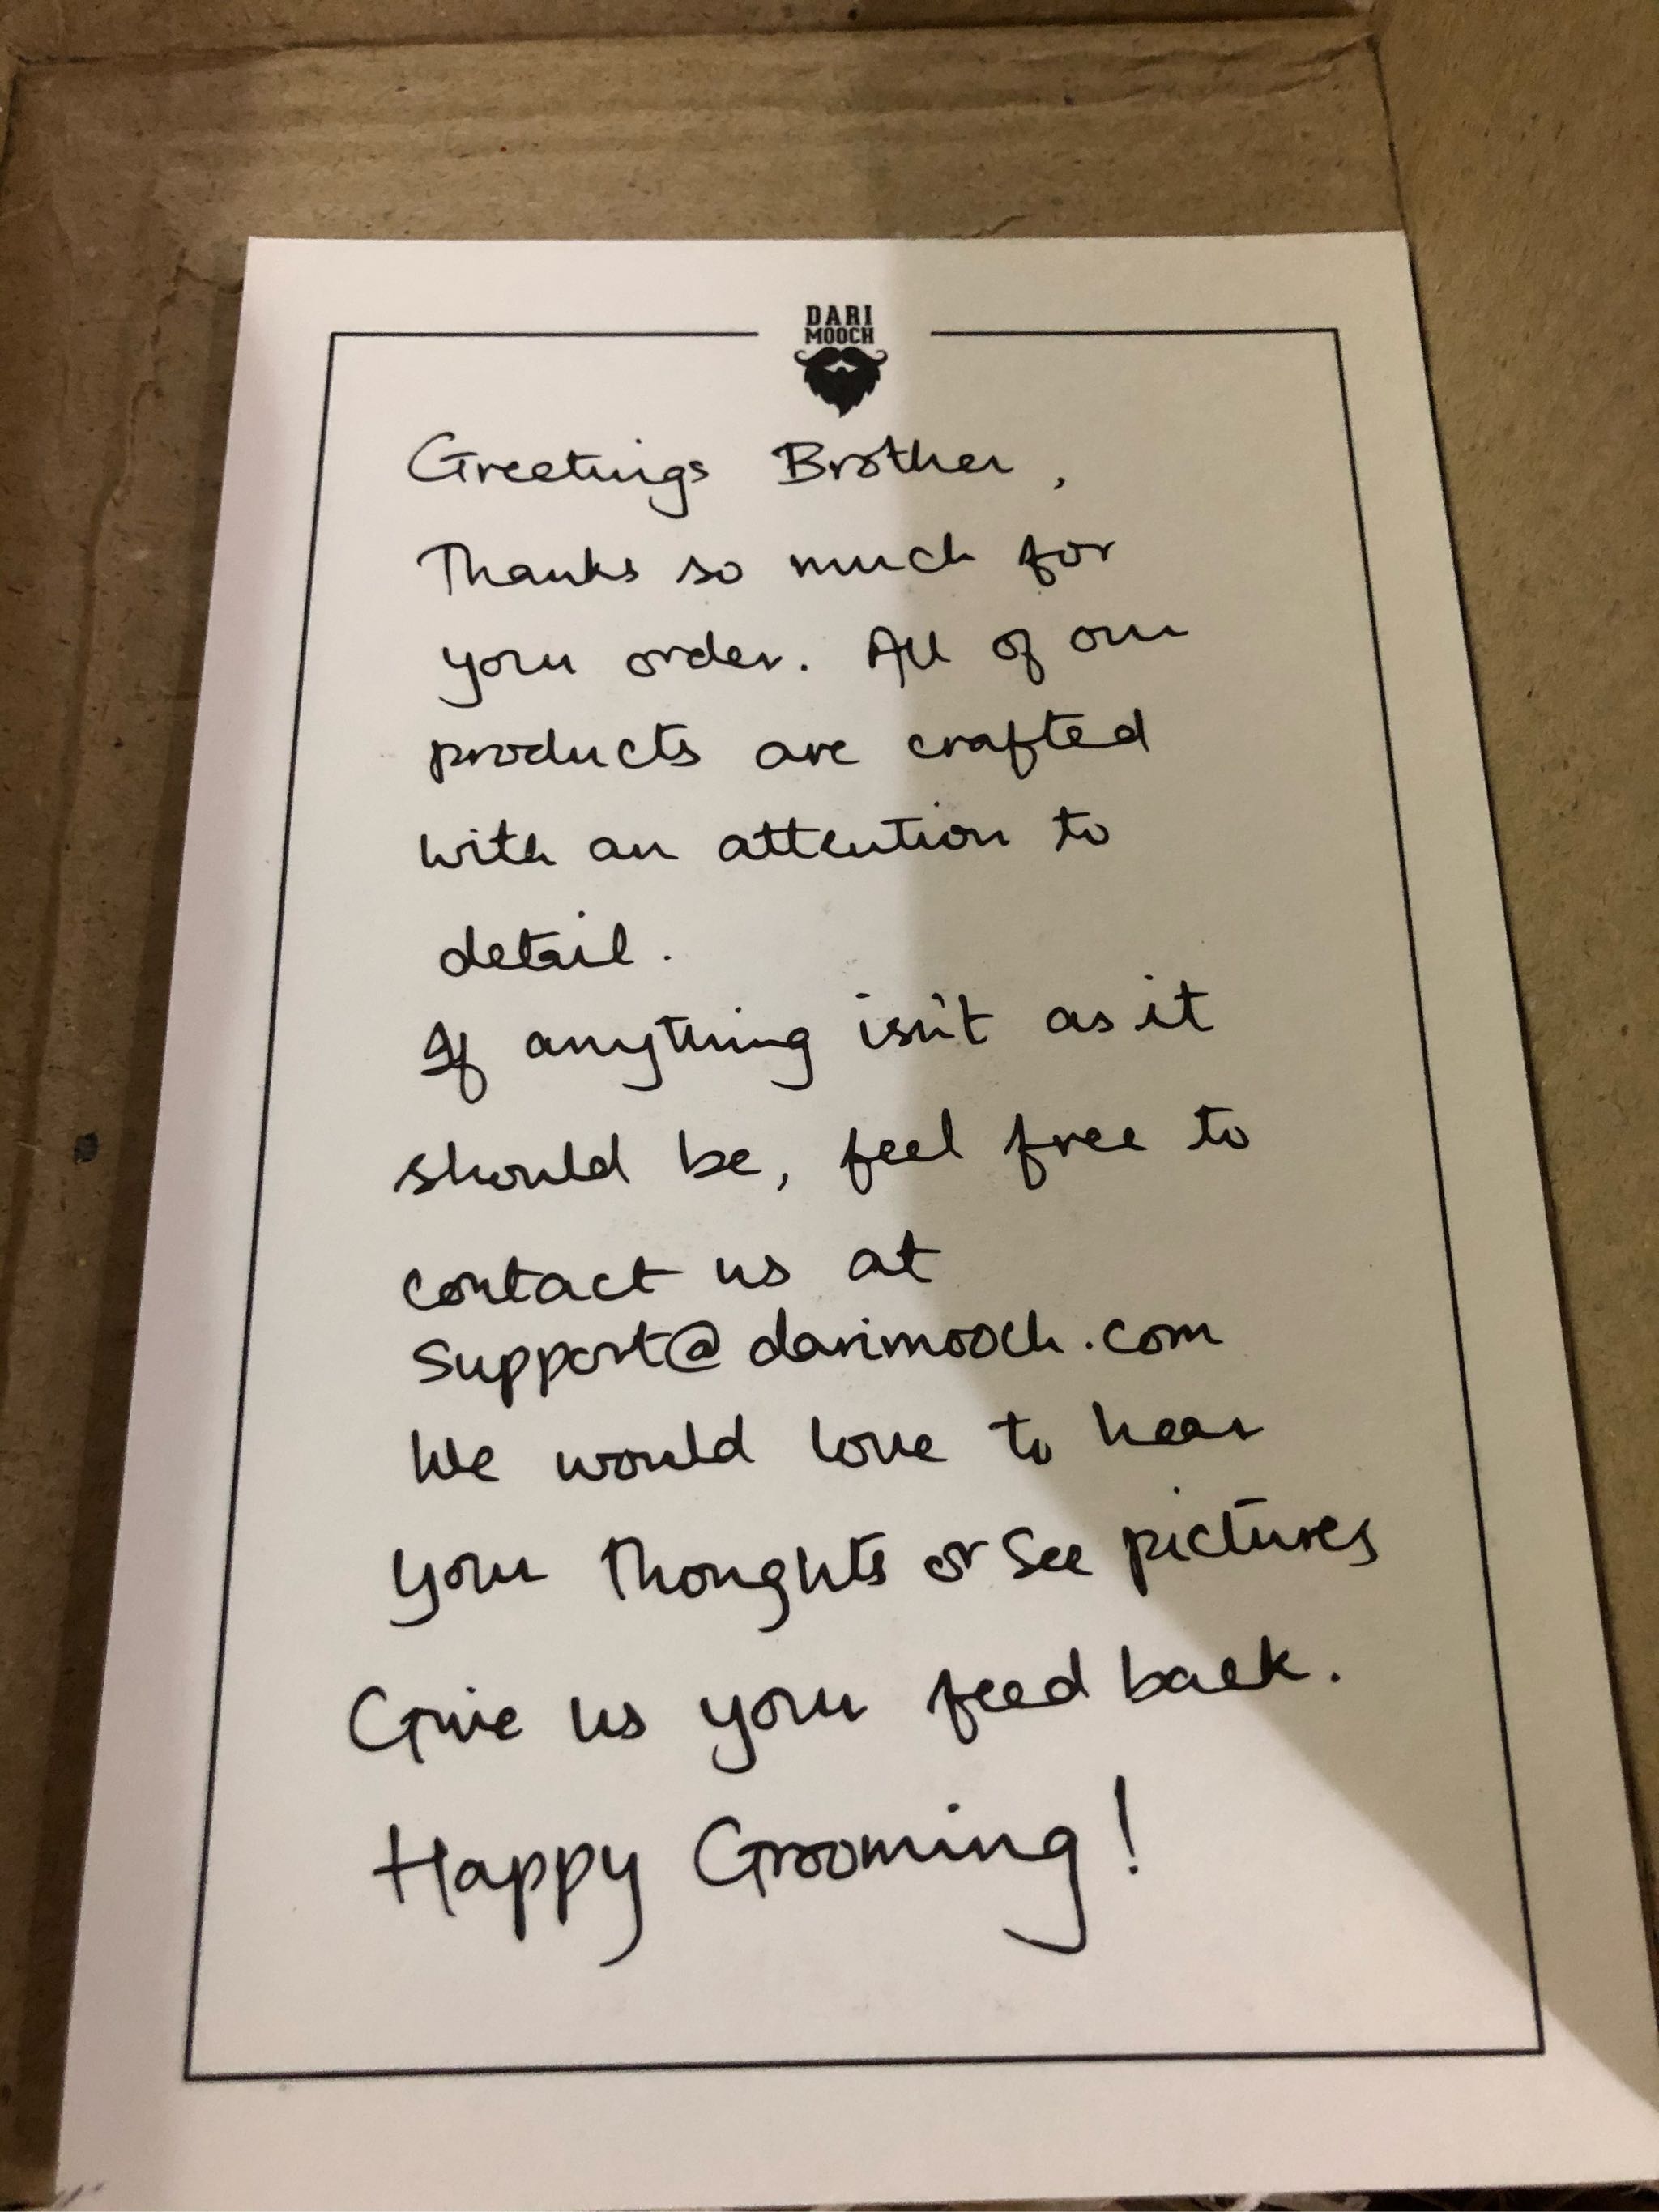 DARI
MOOCH
Greetings Brother,
Thanks so much for
your order. All of our
products are crafted
with an attention to
detail.
If anything isn't as it
should be, feel free to
contact us at
Support@darimooch.com
We would love to hear
your thoughts or See pictures
Give us your feed back.
Happy Grooming!